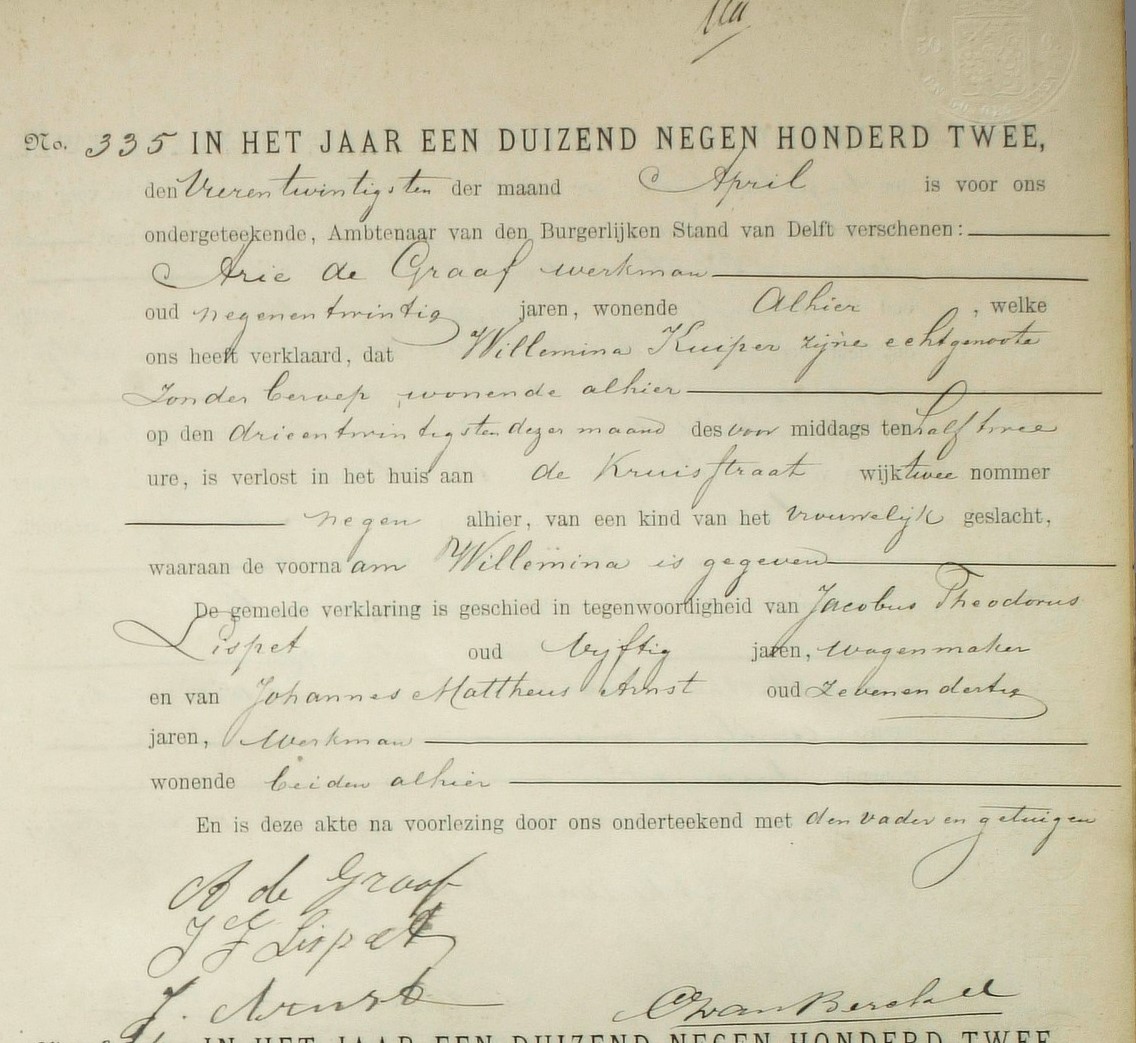 No. 335 IN HET JAAR EEN DUIZEND NEGEN HONDERD TWEE,
den Vierentwintigsten der maand April is voor ons
ondergeteekende, Ambtenaar van den Burgerlijken Stand van Delft verschenen:
Arie de Graaf werkman
oud negenentwintig jaren, wonende Alhier, welke
ons heeft verklaard, dat Willemina Kuiper zijne echtgenoote
Zonder beroep, wonende alhier
op den drieentwintigsten dezer maand des voor middags ten half twee
ure, is verlost in het huis aan de Kruisstraat wijk twee nommer
negen alhier, van een kind van het vrouwelijk geslacht,
waaraan de voornaam Willemina is gegeven
De gemelde verklaring is geschied in tegenwoordigheid van Jacobus Theodorus
Lispet oud Vijftig jaren, wagenmaker
en van Johannes Mattheus Arnst oud zevenendertig
jaren, werkman
wonende beiden alhier
En is deze akte na voorlezing door ons onderteekend met den vader en getuigen
A de Graaf
J T Lispet
J. Arnst
van Berckel
IN HET JAAR EEN DUIZEND NEGEN HONDERD TWEE